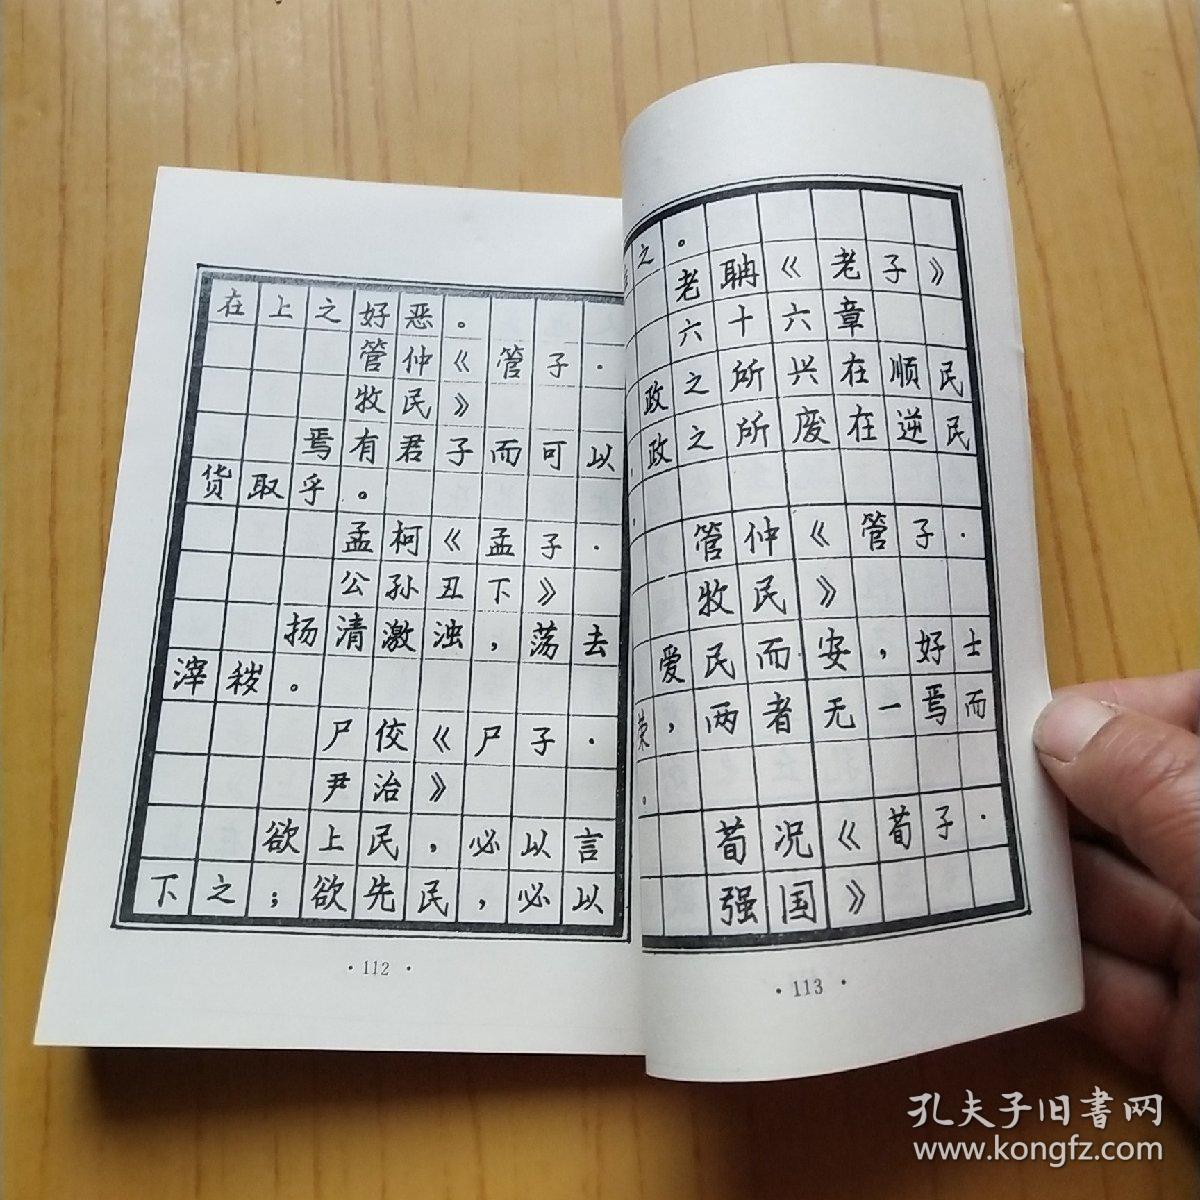 在上之好恶。
管仲《管子·
牧民》
焉有君子而可以
货取乎。
孟柯《孟子·
公孙丑下》
扬清激浊,荡去
滓秽。
尸佼《尸子·
尹治》
欲上民,必以言
下之;欲先民,必以
·112·
之。
老聃《老子》
六十六章
政之所兴在顺民
政之所废在逆民
。
管仲《管子·
牧民》
爱民而安,好士
荣,两者无一焉而
。
荀况《荀子·
强国》
·113·
孔夫子旧書网
www.kongfz.com